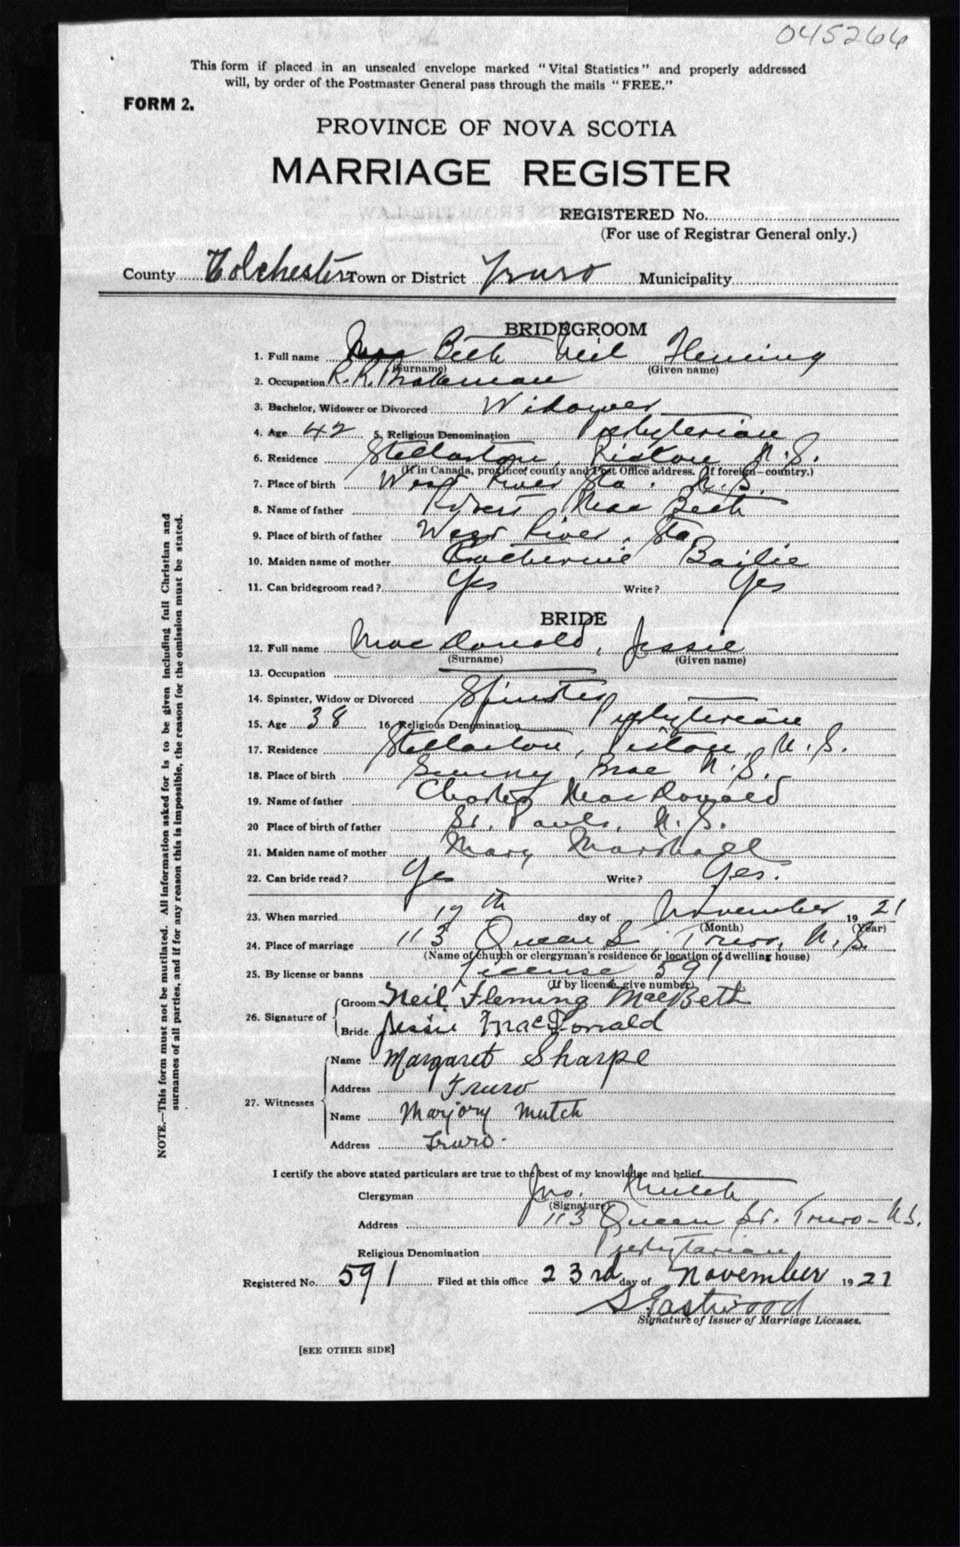 045266
This form if placed in an unsealed envelope marked "Vital Statistics" and properly addressed
will, by order of the Postmaster General pass through the mails "FREE."
FORM 2.
PROVINCE OF NOVA SCOTIA
MARRIAGE REGISTER
REGISTERED No.
(For use of Registrar General only.)
County Colchester Town or District Truro Municipality
BRIDEGROOM
1. Full name Mac Beth Neil Fleming
(Surname) (Given name)
2. Occupation R. R. Brakeman
3. Bachelor, Widower or Divorced Widower
4. Age 42 5. Religious Denomination Presbyterian
6. Residence Stellarton, Pictou N.S.
(If in Canada, province, county and Post Office address. If foreign—country.)
7. Place of birth West River Sta. N.S.
8. Name of father Robert Mac Beth
9. Place of birth of father West River, Sta
10. Maiden name of mother Catherine Bailie
11. Can bridegroom read? Yes Write? Yes
BRIDE
12. Full name Mac Donald, Jessie
(Surname) (Given name)
13. Occupation
14. Spinster, Widow or Divorced Spinster
15. Age 38 16. Religious Denomination Presbyterian
17. Residence Stellarton, Pictou, N.S.
18. Place of birth Sunny Brae N.S.
19. Name of father Charles MacDonald
20 Place of birth of father St. Pauls, N.S.
21. Maiden name of mother Mary Marshall
22. Can bride read? Yes Write? Yes.
23. When married 17th day of November 1921
(Month) (Year)
24. Place of marriage 113 Queen S. Truro, N.S.
(Name of church or clergyman's residence or location of dwelling house)
25. By license or banns License 591
(If by license, give number)
26. Signature of Groom Neil Fleming MacBeth
Bride Jessie MacDonald
27. Witnesses Name Margaret Sharpe
Address Truro
Name Marjory Mutch
Address Truro.
I certify the above stated particulars are true to the best of my knowledge and belief.
Clergyman Jno. Mutch
(Signature)
Address 113 Queen St. Truro - N.S.
Religious Denomination Presbyterian
Registered No. 591 Filed at this office 23rd day of November 1921
S Eastwood
Signature of Issuer of Marriage Licenses.
[SEE OTHER SIDE]
NOTE.—This form must not be mutilated. All information asked for is to be given including full Christian and
surnames of all parties, and if for any reason this is impossible, the reason for the omission must be stated.